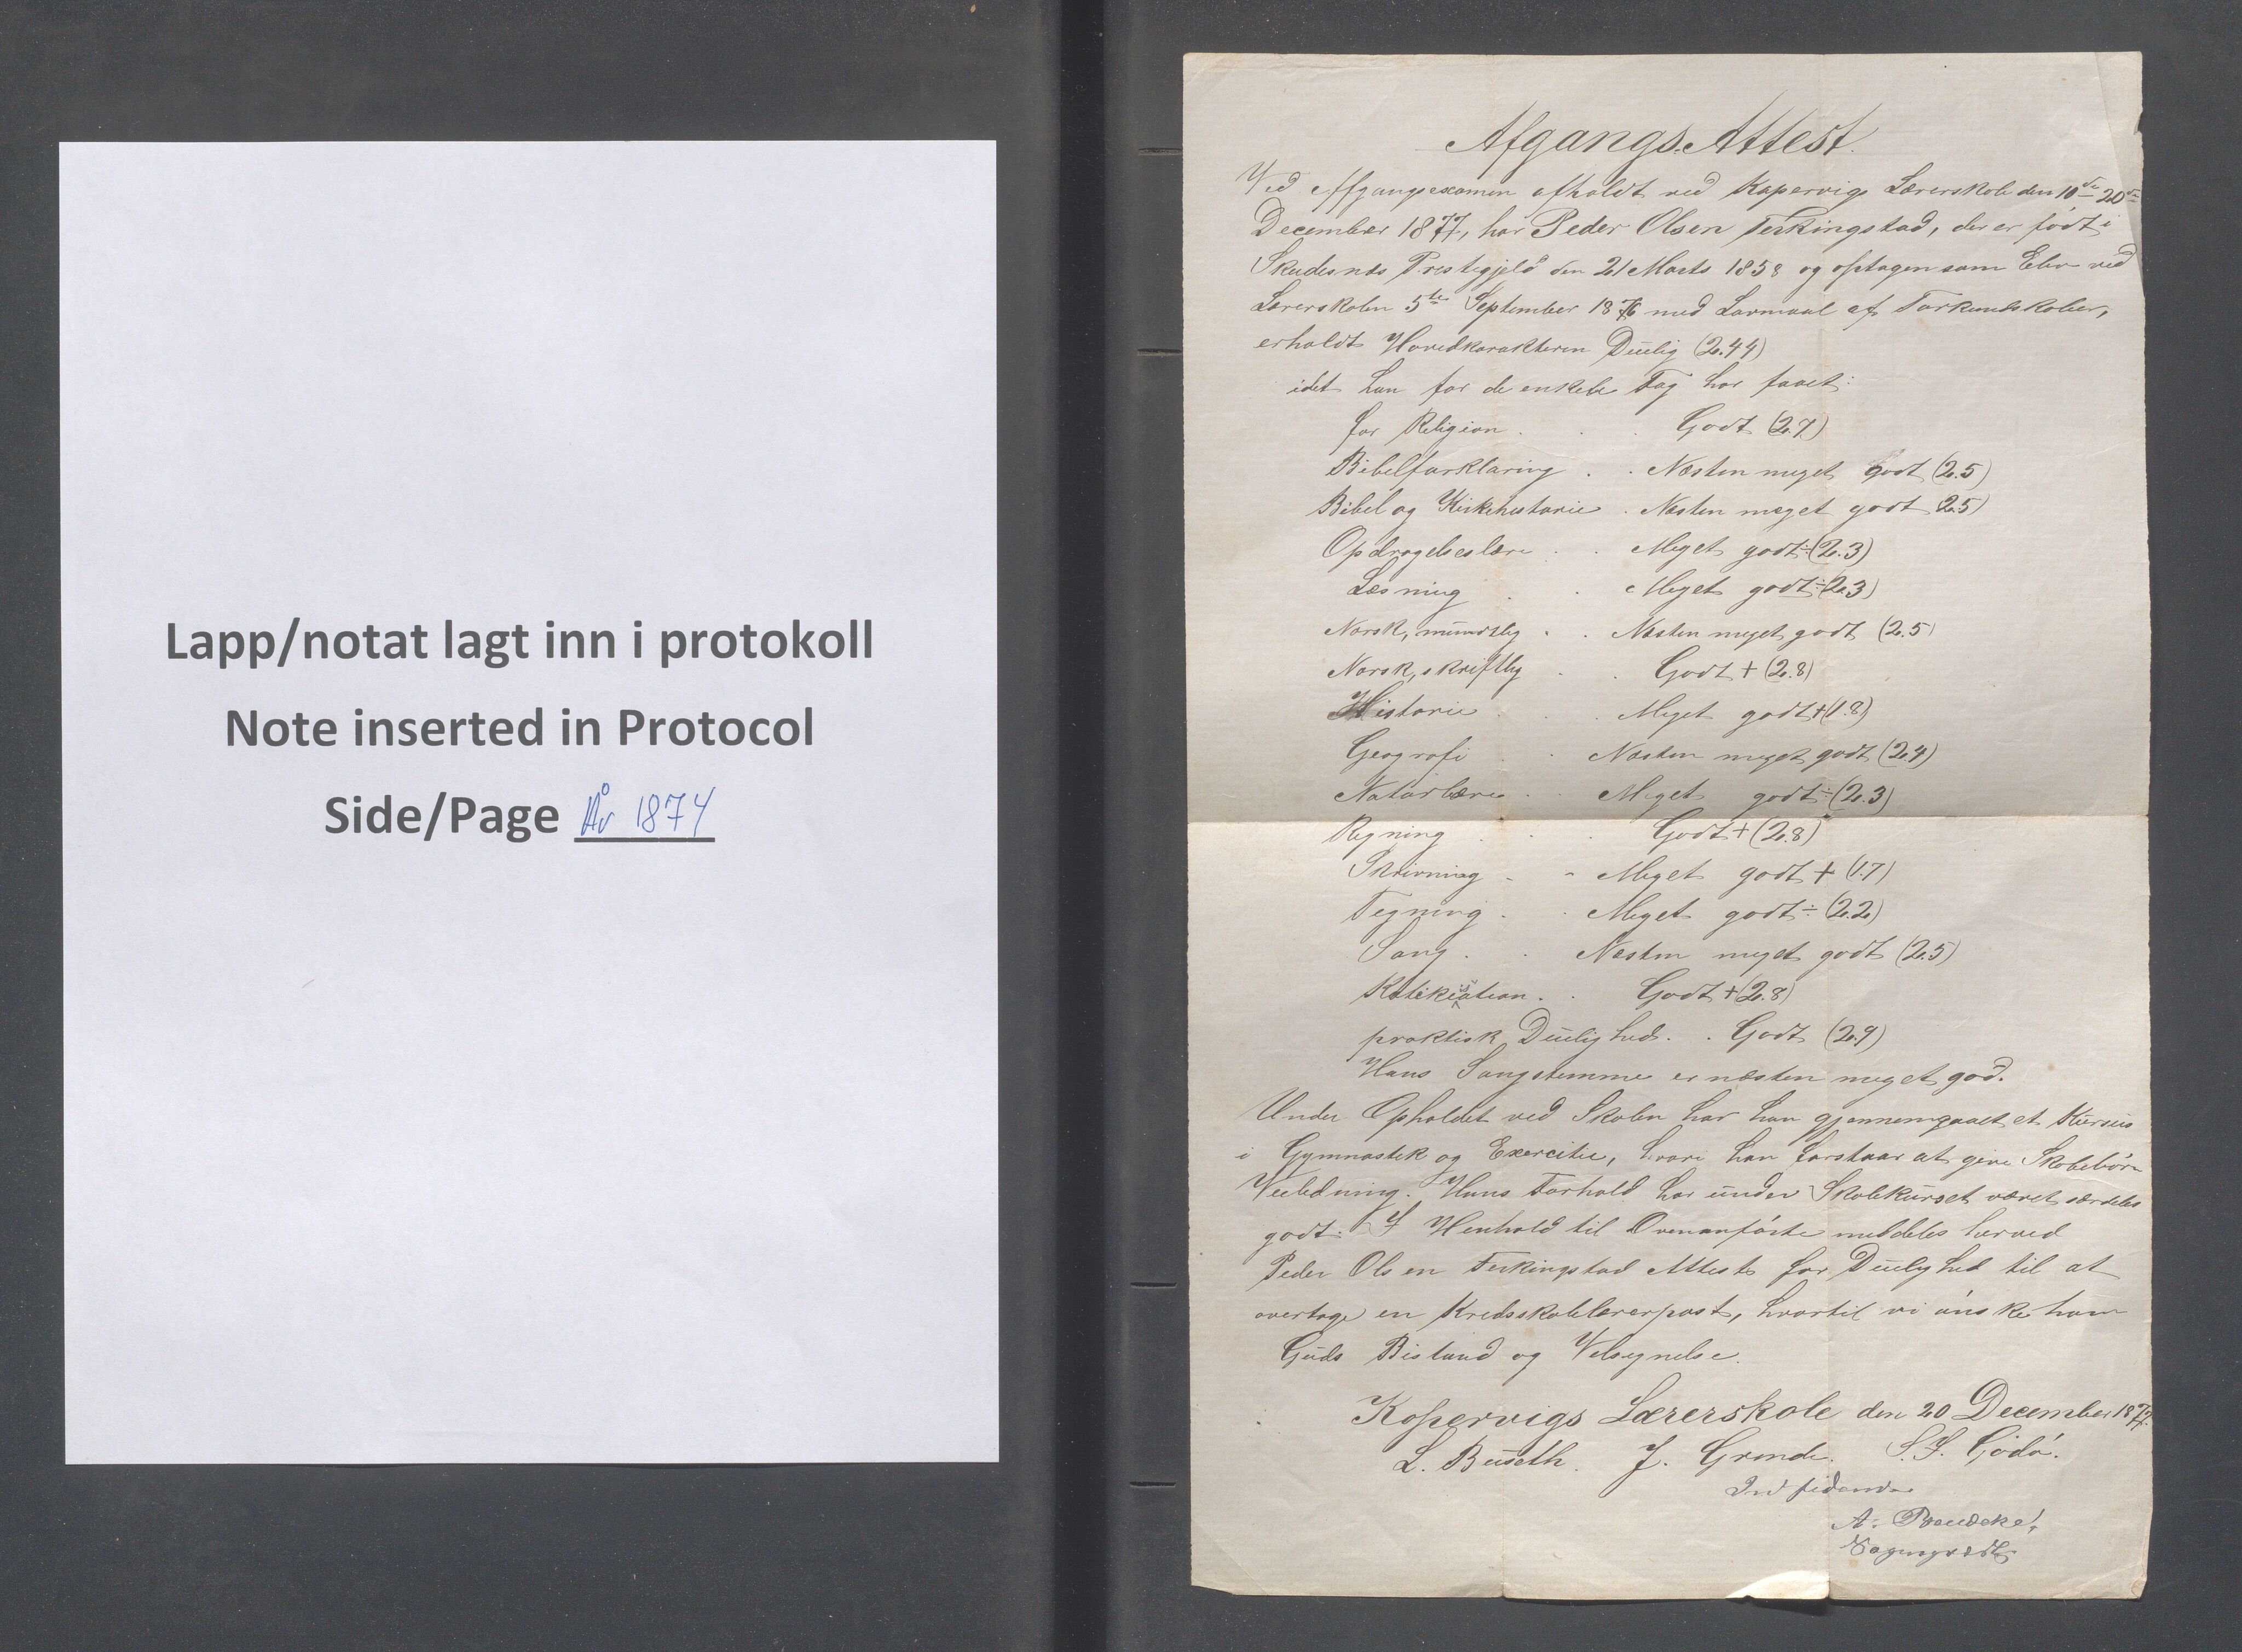 Lapp/notat lagt inn i protokoll
Note inserted in Protocol
Side/Page År 1874
Afgangs-Attest.
Ved Afgangsexamen afholdt ved Kopervigs Lærerskole den 10de-20de
December 1877, har Peder Olsen Ferkingstad, der er født i
Skudesnæs Prestegjeld den 21 Marts 1858 og optagen som Elev ved
Lærerskolen 5te September 1876 med Lavmaal af Forkundskaber,
erholdt Hovedkarakteren Duelig (2.44)
idet han for de enkelte Fag har faaet:
for Religion . . . Godt (2.7)
Bibelforklaring . . Næsten meget godt (2.5)
Bibel og Kirkehistorie . Næsten meget godt 2.5)
Opdragelseslære . . Meget godt ÷ (2.3)
Læsning . . Meget godt ÷ (2.3)
Norsk, mundtlig . . Næsten meget godt (2.5)
Norsk, skriftlig . . Godt + (2.8)
Historie . . . Meget godt + (1.8)
Geografi . . Næsten meget godt (2.4)
Naturlære . . Meget godt ÷ (2.3)
Regning . . . Godt + (2.8)
Skrivning . . Meget godt + (1.7)
Tegning . . Meget godt ÷ (2.2)
Sang . . Næsten meget godt (2.5)
Katekisation . . Godt + (2.8)
praktisk Duelighed . . Godt (2.9)
Hans Sangstemme er næsten meget god.
Under Opholdet ved Skolen har han gjennemgaaet et Kursus
i Gymnastik og Exercitie, hvori han forstaar at give Skolebørn
Veiledning. Hans Forhold har under Skolekurset været særdeles
godt. I Henhold til Ovenanførte meddeles herved
Peder Olsen Ferkingstad Attest for Duelighed til at
overtage en Kredsskolelærerpost, hvortil vi ønske ham
Guds Bistand og Velsignelse.
Kopervigs Lærerskole den 20 December 1877.
L. Buseth. J. Grinde. S. S. Gjödö.
A.